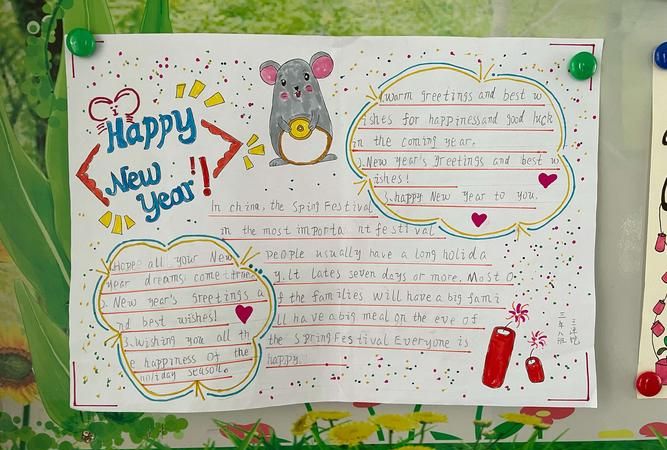 Happy
New
Year!!
1.warm greetings and best w
ishes for happiness and good luck
in the coming year.
2.New year's greetings and best w
ishes!
3.happy New Year to you.
In china, the Sping Festival
in the most importa nt festival
people usually have a long holida
y. It lates seven days or more. Most o
f the families will have a big fami
ll have a big meal on the eve of
the Spring Festival Everyone is
happy.
1.Hope all your New
year dreams come true
2. New year's greetings a
nd best wishes!
3.wishing you all th
e happiness of the
holiday season.
三年八班